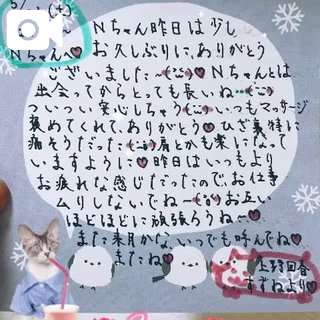 5/1(土)
Nちゃんへ♥
Nちゃん昨日は少し
お久しぶりに、ありがとう
ございました♥ Nちゃんとは
出会ってからとっても長いね
ついつい安心しちゃう♥いつもマッサージ
褒めてくれて、ありがとう♥ひざ裏特に
痛そうだった 肩とかも楽になって
いますように♥昨日はいつもより
お疲れな感じだったので、お仕事
ムリしないでね お互い
ほどほどに頑張ろうね〜♥
また来月かな、いつでも呼んでね♥
またね♥
上野回春
すずねより♥